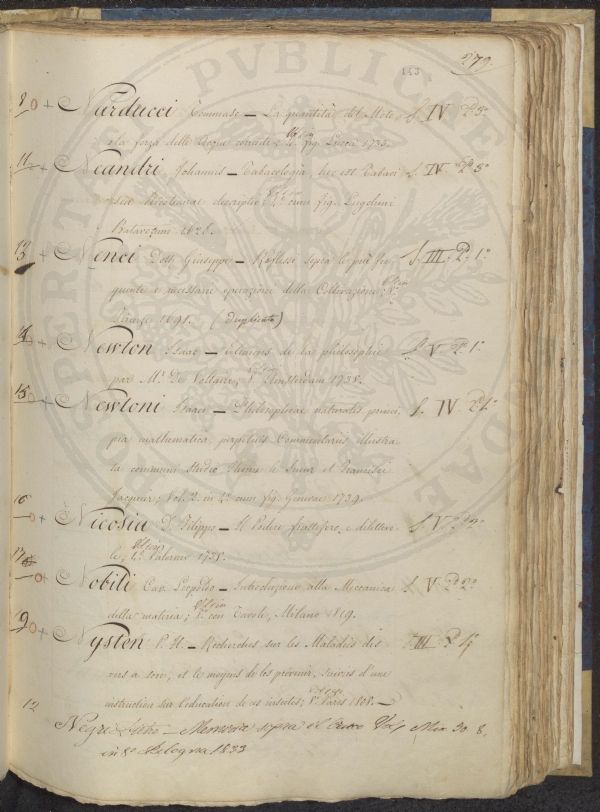 143 279
8 + Narducci Tommaso — La quantità del Moto S. IV. P. 5ª
o la forza delle Acque correnti; 4° fig. Lucca 1733.
11 + Neandri Johannis — Tabacologia, hoc est Tabaci S. IV. P. 5ª
seu Nicotianae descriptio; 4° cum fig. Lugduni
Batavorum 1626.
13 + Nenci Dott. Giuseppe — Riflessi sopra le più fre S. III. P. 1ª
quenti e necessarie operazione della Coltivazione;
Firenze 1691. (duplicato)
14 + Newton Isaac — de la philosophie S. V. P. 1ª
par Mr. De Voltaire, Amsterdam 1738.
15 + Newtoni Isaaci — Philosophiae naturalis princi S. IV. P.
pia mathematica, perpetuis Commentariis illustra
ta communi studio Thomae le Seur et Francisci
Jacquier; Vol. 2. in 4° cum fig. Genevae 1739.
16 + Nicosia D. Filippo — Il Podere fruttifero, e dilettevo S. V. P. 2ª
le, Palermo 1735.
17 + Nobili Cav. Leopoldo — Introduzione alla Meccanica S. V. P. 2ª
della materia; 8° con Tavole, Milano 1819.
9 + Nysten P. H. — Recherches sur les Maladies des III. P.
vers a soie, et les moyens de les prévenir, suivies d'une
instruction sur l'education de ces insectes; 8° Paris 1808. —
12 Negri — Memoria sopra il 30. 8,
in 8° Bologna 1833